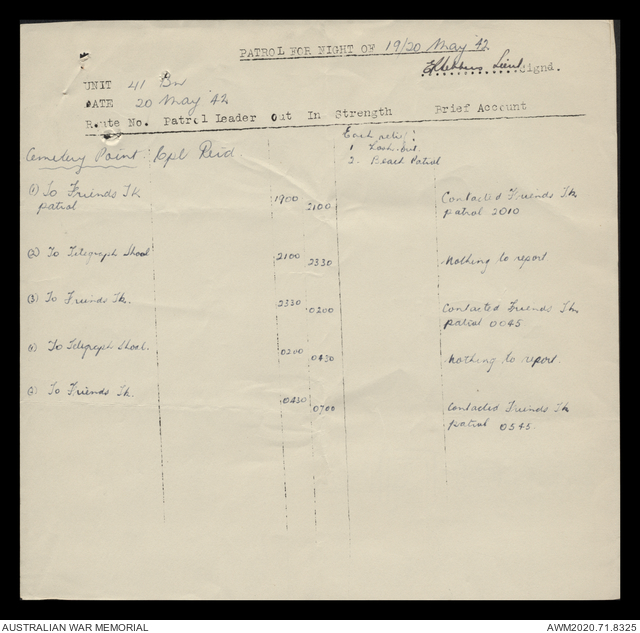 PATROL FOR NIGHT OF 19/20 May '42
Lieut. Signd.
UNIT 41 Bn
DATE 20 May '42
Route No. Patrol Leader Out In Strength Brief Account
Each act :
1 Look-out
2. Beach Patrol
Cemetery Point: Cpl Reid.
(1) To Friends Tk 1900 2100 Contacted Friends Tk.
patrol patrol 2010
(2) To Telegraph Shoal 2100 2330 Nothing to report
(3) To Friends Tk. 2330 0200 Contacted Friends Tk.
patrol 0045
To Telegraph Shoal. 0200 0430 Nothing to report
To Friends Tk. 0430 0700 Contacted Friends Tk
patrol 0545.
AUSTRALIAN WAR MEMORIAL AWM2020.71.8325